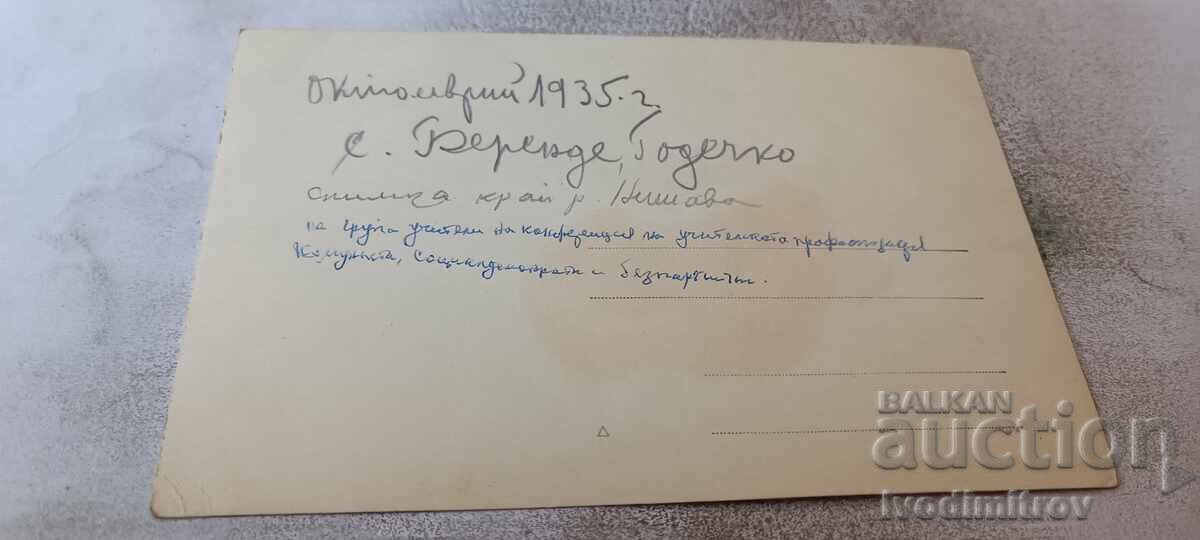 октомврий 1935.г.
с. Беренде, Годечко
снимка край р. Нишава
на група учители на конференция на учителската профорганизация
Комунисти, социалдемократи и безпартийни.
BALKAN
auction
Ivodimitrov